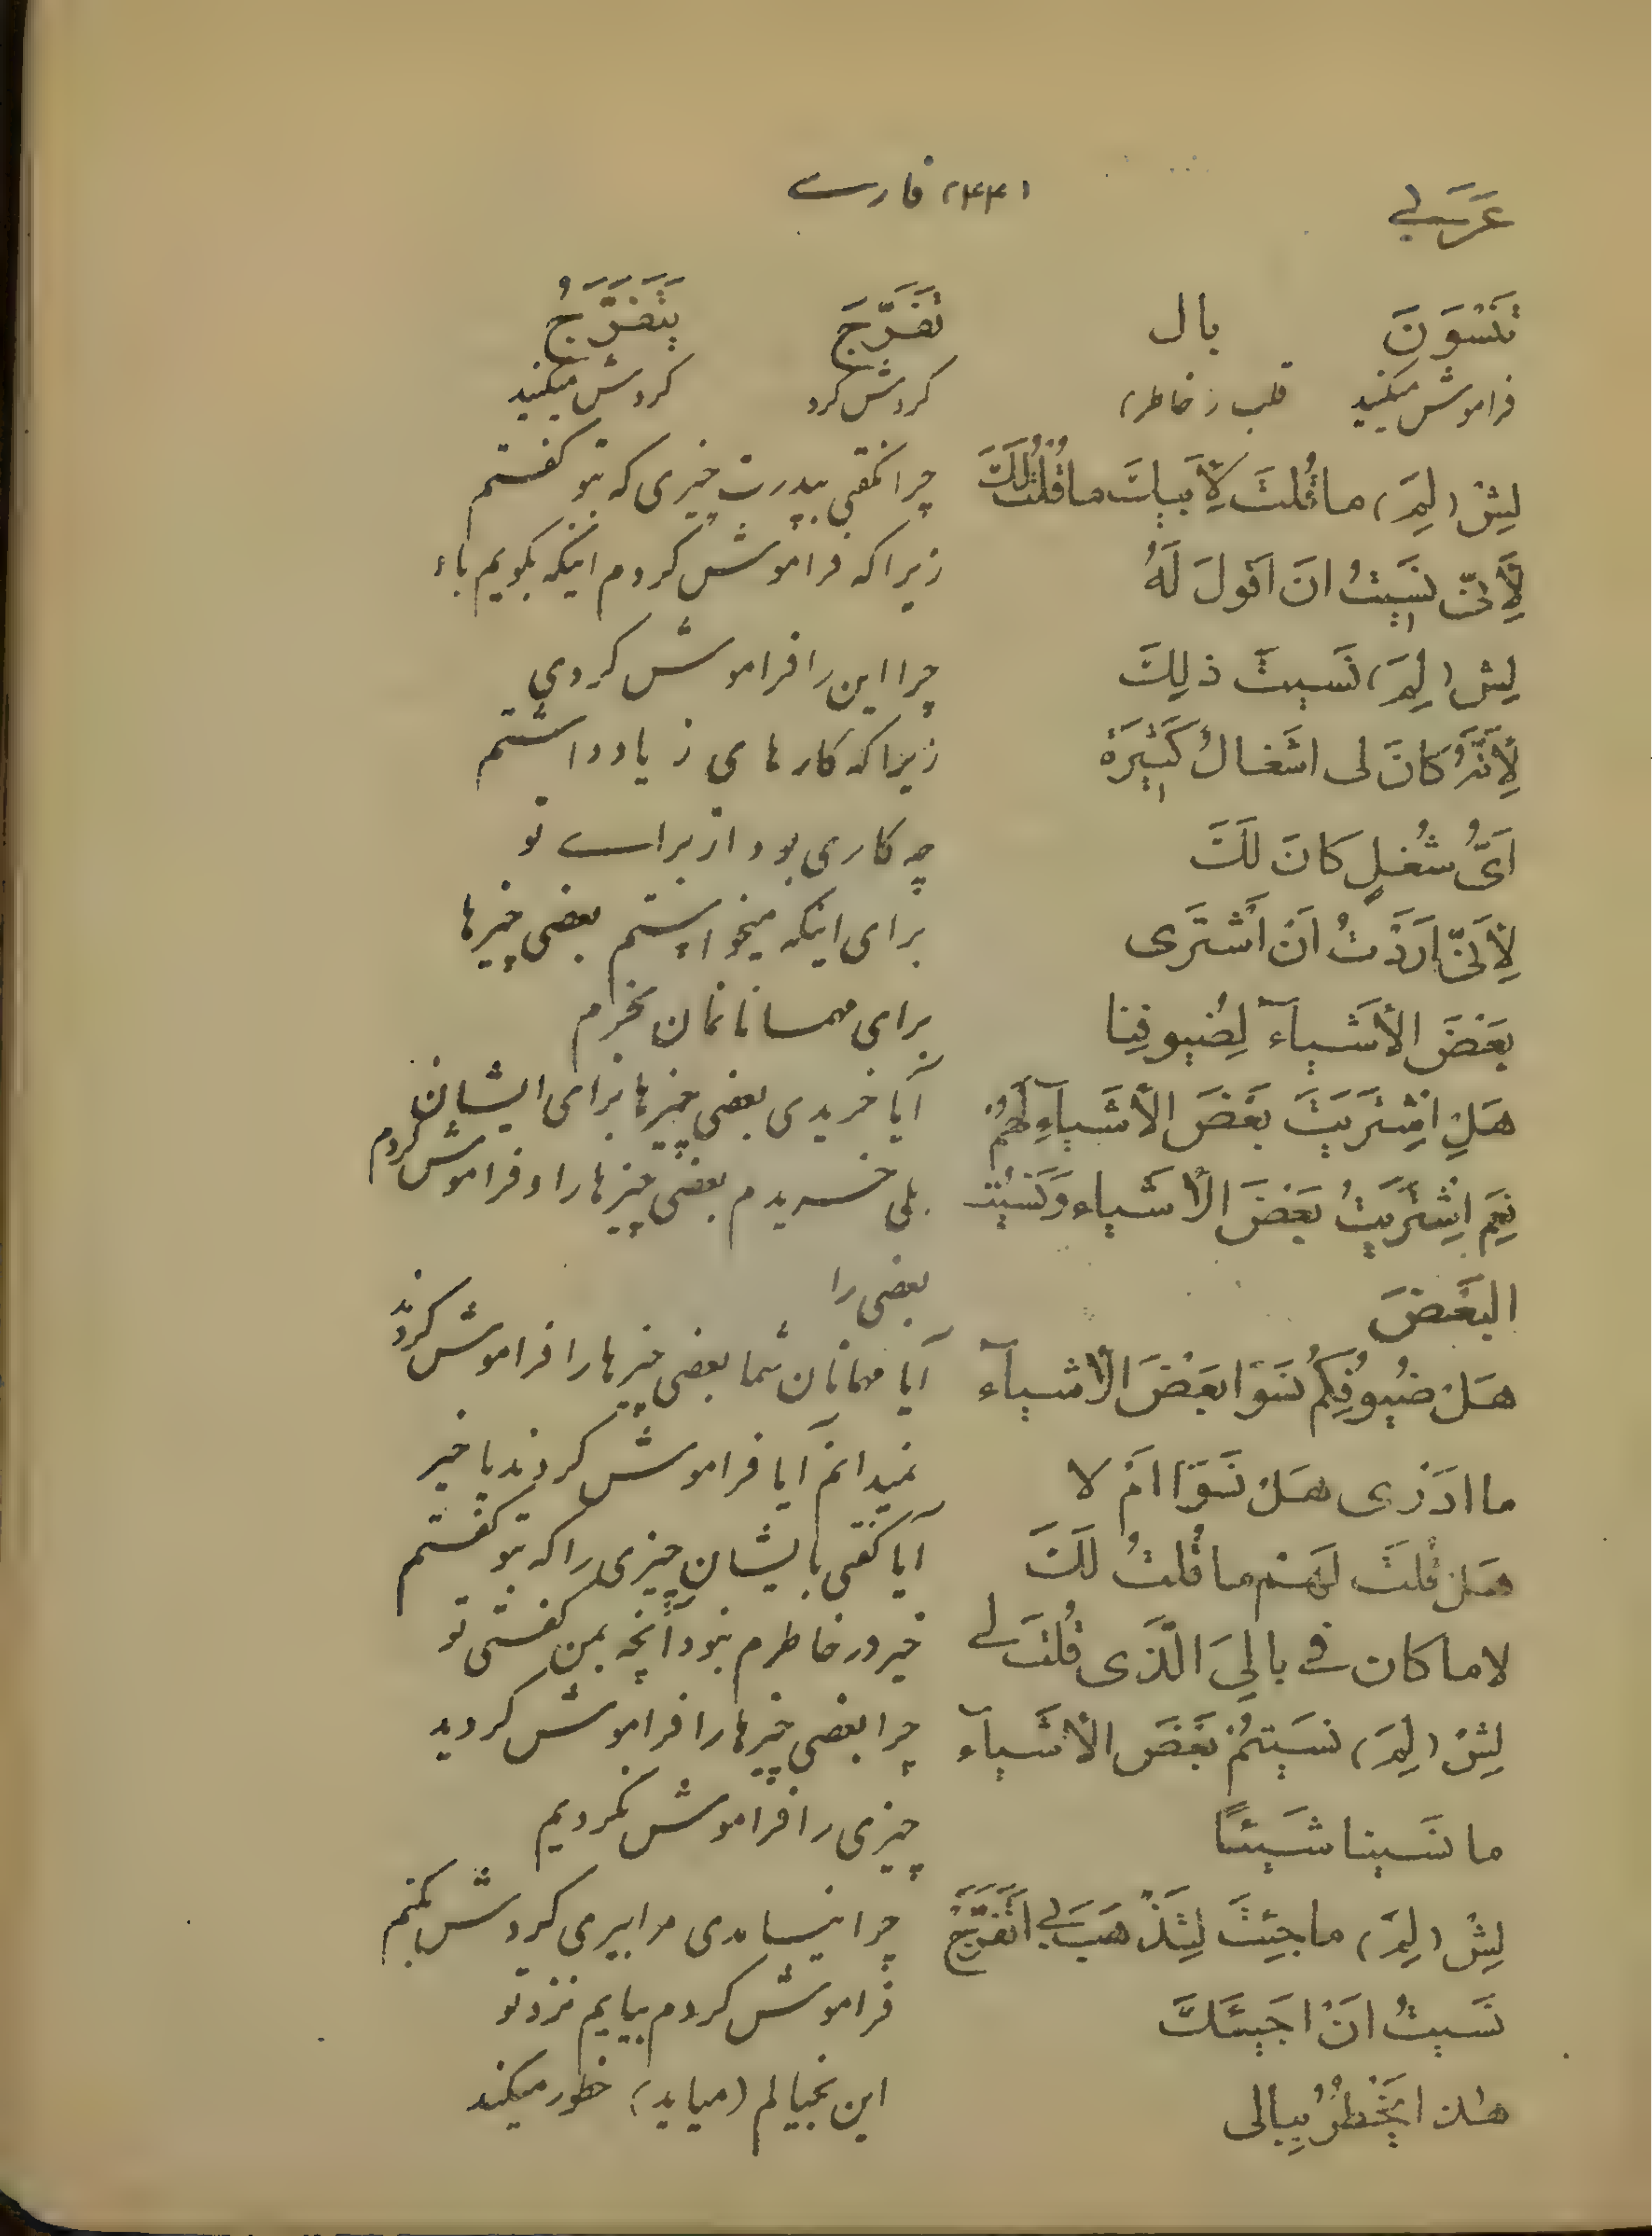 عَرَبی ۱۴۴۱ فارسی
تَنْسَوْنَ بال تَفَرَّجَ يَتَفَرَّجُ
فراموش میکنید قلب (خاطر) کردش کرد کردش میکنید
لِشْ (لِمَ) ما قُلتَ لِأَبيكَ ما قُلْتُ لَكَ چرا نگفتی بپدرت چیزی که بتو کفتم
لِأَنّى نَسيتُ انَ اَقولَ لَهُ زیرا که فراموش کردم اینکه بکویم باو
لِشْ (لِمَ) نَسيتَ ذلِكَ چرا این را فراموش کردی
لِأَنَّهُ كانَ لى اشَغالٌ كَثيرَة زیرا که کارهای زیاد داشتم
اَىُّ شُغلٍ كانَ لَكَ چه کاری بود از برای تو
لِأَنّى اَرَدْتُ اَنْ اَشْتَرى برای اینکه میخواستم بعضی چیزها
بَعْضَ الأَشْياۤءَ لِضُيوفِنا برای مهمانانمان بخرم
هَلِ اشْتَرَيْتَ بَعْضَ الأَشْياۤءِ لَهُمْ آیا خریدی بعضی چیزها برای ایشان
نِعَم اشْتَرَيتُ بَعْضَ الأَشَياء وَنَسيْتُ بلی خریدم بعضی چیزها را و فراموش کردم
البَعْضَ بعضی را
هَلْ ضُيوفُكُمْ نَسَوْا بَعْضَ الأَشياۤء آیا مهمانان شما بعضی چیزها را فراموش کردند
ما ادَرْى هَلْ نَسَوْا اَمْ لا نمیدانم آیا فراموش کردند یا خیر
هَلْ قُلتَ لَهُمْ ما قُلتُ لَكَ آیا کفتی بایشان چیزی را که بتو کفتم
لا ما كان فی بالِيَ الَّذَى قُلتَ لی خیر در خاطرم نبود آنچه بمن کفتی تو
لِشْ (لِمَ) نَسَيتُمْ بَعْضَ الأَشَياۤء چرا بعضی چیزها را فراموش کردید
ما نَسَينا شَيئًا چیزی را فراموش نکردیم
لِشْ (لِمَ) ما جِئتَ لِتَذْهَبَ بی اَتَفَرَّجُ چرا نیامدی مرا ببری کردش بکنم
نَسَيتُ اَنْ اَجَيئَكَ فراموش کردم بیایم نزد تو
هٰذا يَخْطُرُ بِبالى این بخیالم (میاید) خطور میکند